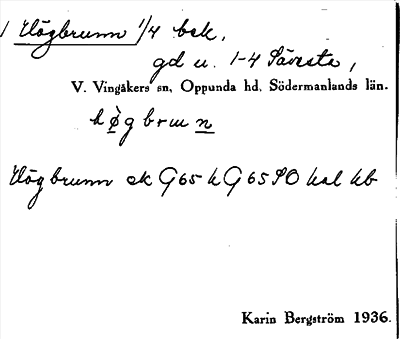 Högbrunn 1/4 bsk,
gd u. 1-4 Sävsta,
V. Vingåkers sn, Oppunda hd, Södermanlands län.
högbrun
Högbrunn ek G65 h G65 SO hal kb
Karin Bergström 1936.